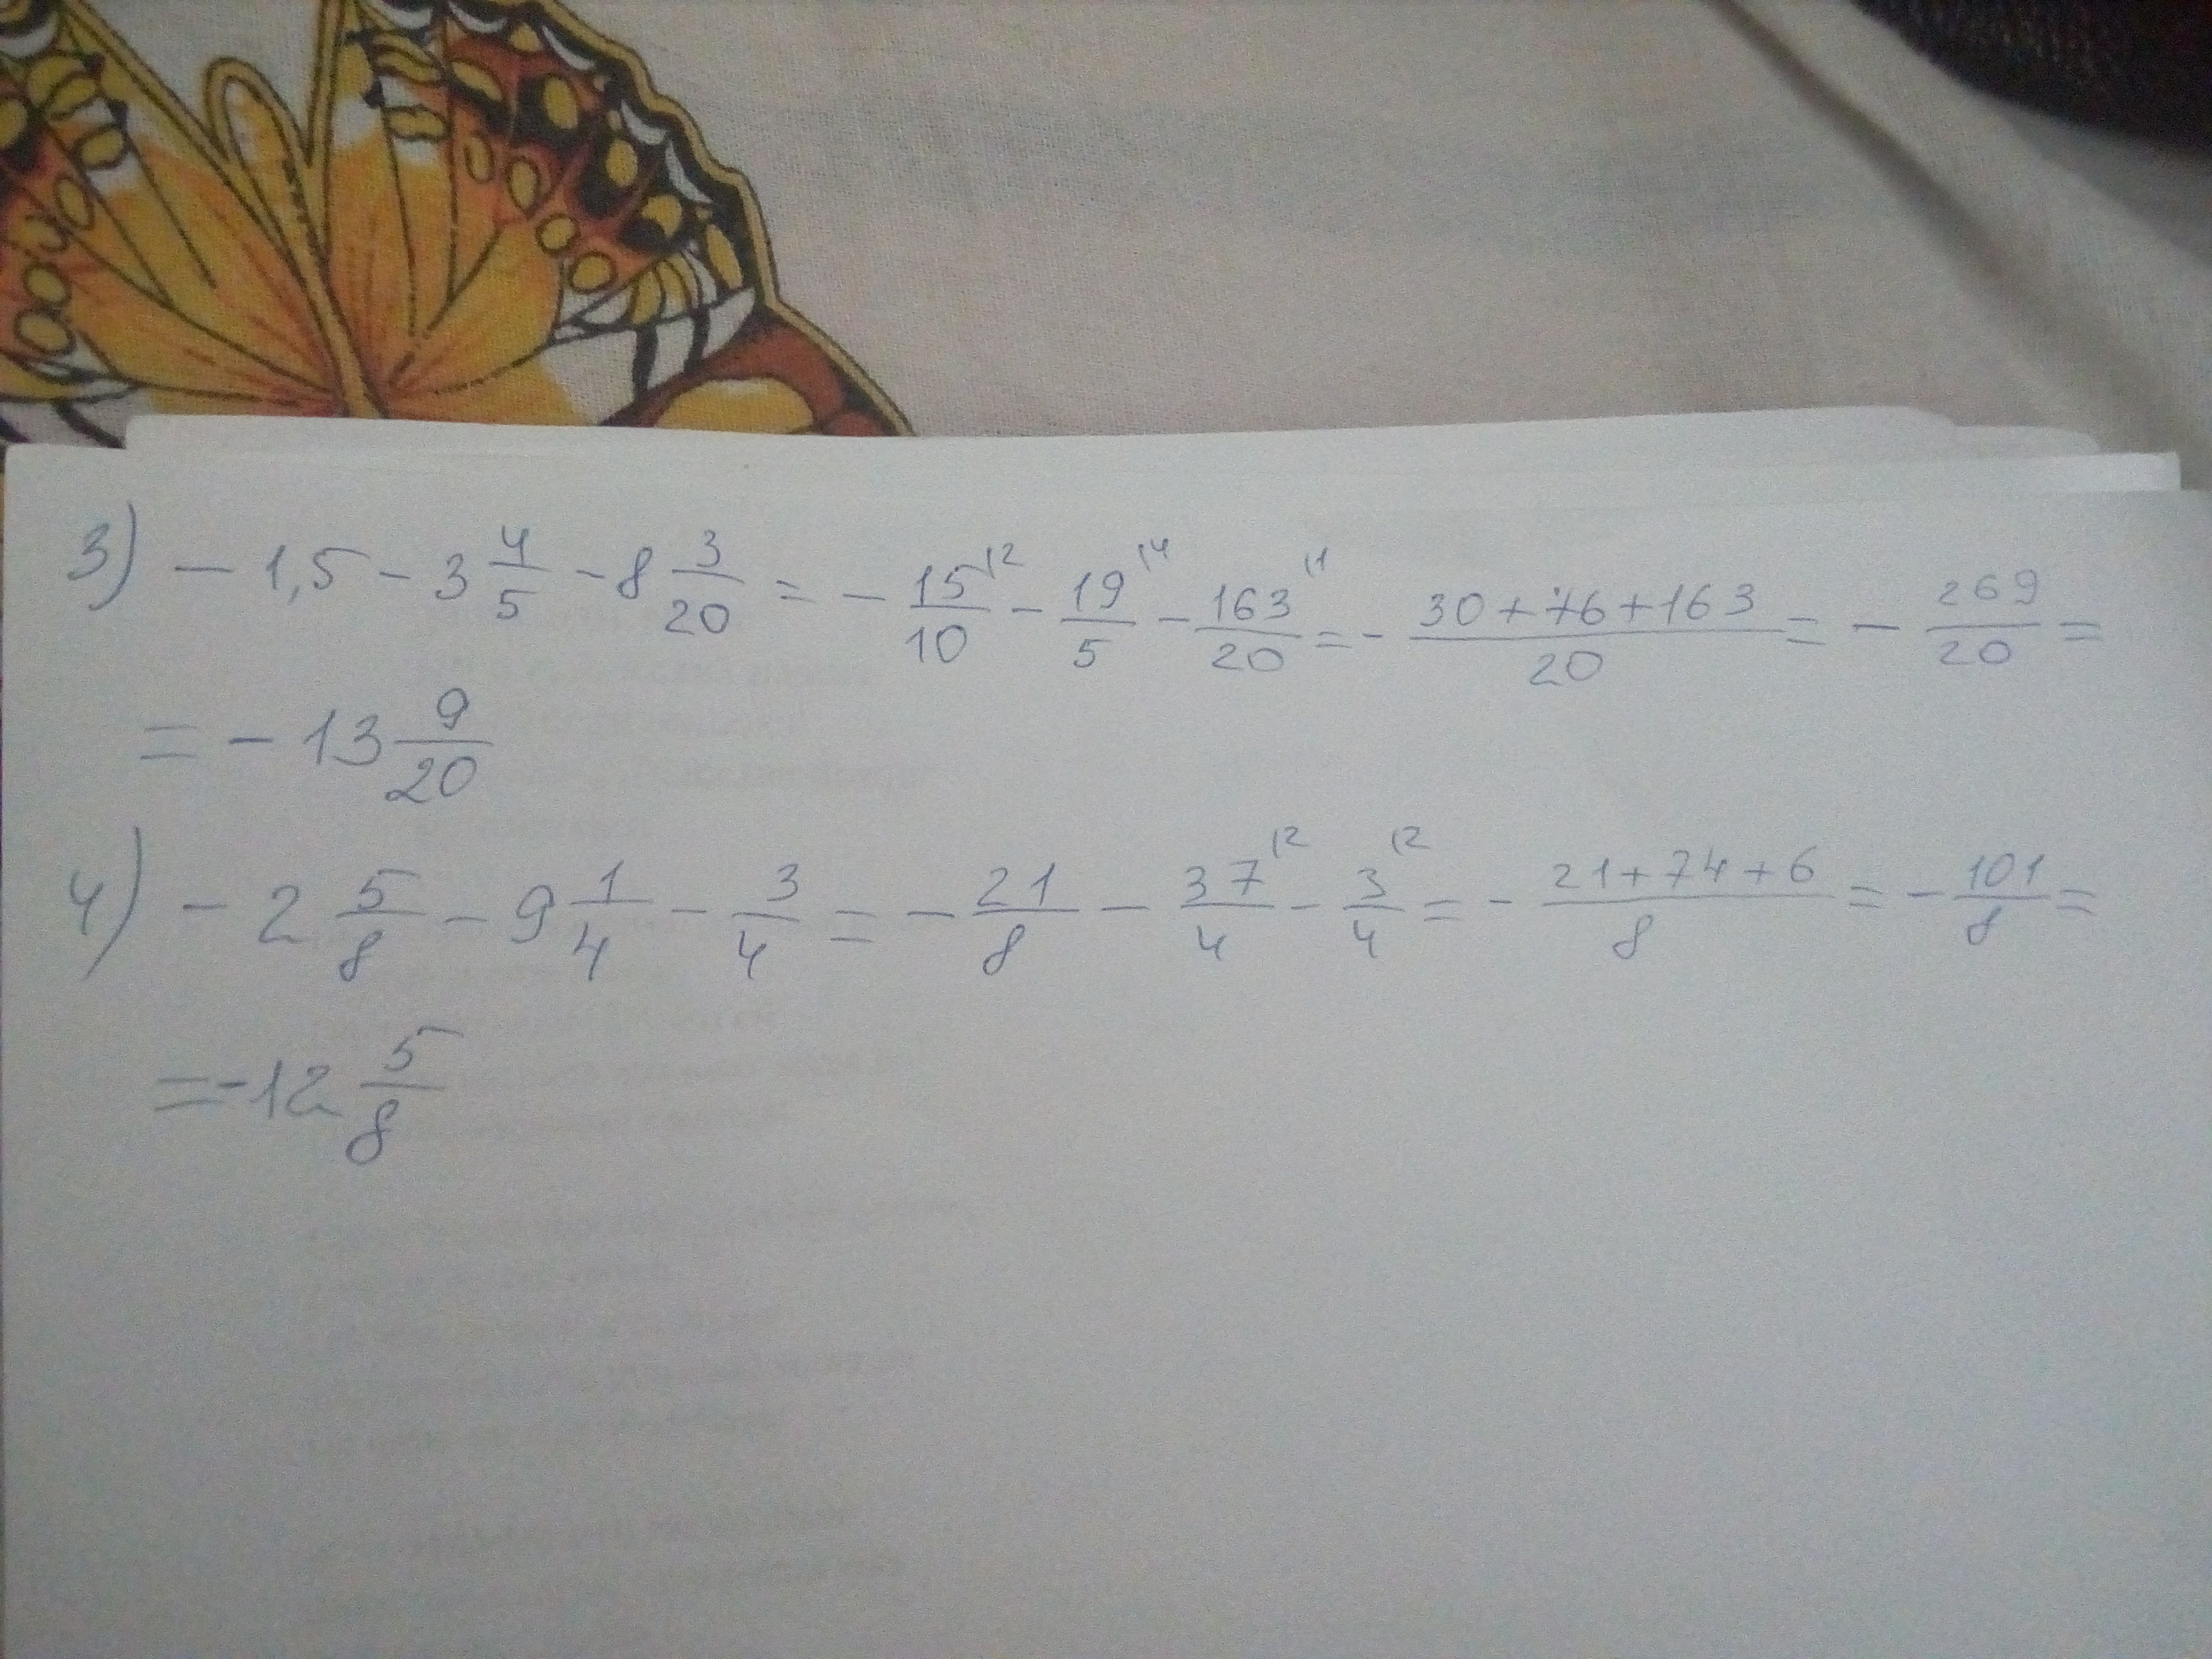 3) - 1,5 - 3 4/5 - 8 3/20 = - 15/10 (2 - 19/5 (4 - 163/20 (1 = - 30+76+163/20 = - 269/20 =
= - 13 9/20
4) - 2 5/8 - 9 1/4 - 3/4 = - 21/8 - 37/4 (2 - 3/4 (2 = - 21+74+6/8 = - 101/8 =
= - 12 5/8